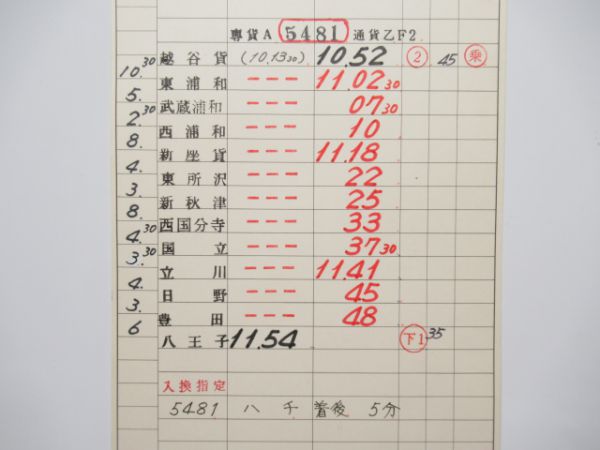 専貨A 5481 通貨乙F2
越谷貨 (10.13 30) 10.52 ② 45 乗
10.30
東浦和 --- 11.02 30
5.
武蔵浦和 --- 07 30
2.30
西浦和 --- 10
8.
新座貨 --- 11.18
4.
東所沢 --- 22
3.
新秋津 --- 25
8.
西国分寺 --- 33
4.30
国立 --- 37 30
3.30
立川 --- 11.41
4.
日野 --- 45
3.
豊田 --- 48
6
八王子 11.54 下1 35
入換指定
5481 ハチ 着後 5分